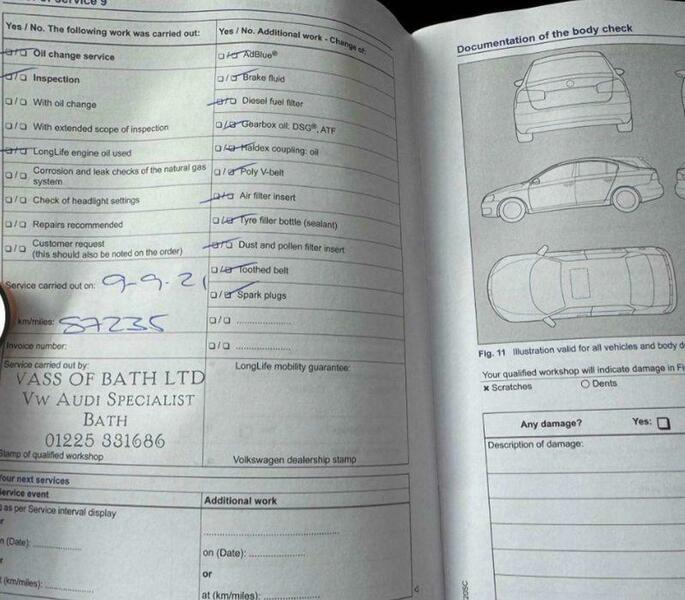 of Service 9
Yes / No. The following work was carried out:
☐/☐ Oil change service
☐/☐ Inspection
☐/☐ With oil change
☐/☐ With extended scope of inspection
☐/☐ LongLife engine oil used
☐/☐ Corrosion and leak checks of the natural gas
system
☐/☐ Check of headlight settings
☐/☐ Repairs recommended
☐/☐ Customer request
(this should also be noted on the order)
Service carried out on: 9-9-21
km/miles: 87235
Invoice number:
Service carried out by:
VASS OF BATH LTD
VW AUDI SPECIALIST
BATH
01225 331686
Stamp of qualified workshop
Yes / No. Additional work - Change of:
☐/☐ AdBlue®
☐/☐ Brake fluid
☐/☐ Diesel fuel filter
☐/☐ Gearbox oil: DSG®, ATF
☐/☐ Haldex coupling: oil
☐/☐ Poly V-belt
☐/☐ Air filter insert
☐/☐ Tyre filler bottle (sealant)
☐/☐ Dust and pollen filter insert
☐/☐ Toothed belt
☐/☐ Spark plugs
☐/☐ ....................
☐/☐ ....................
LongLife mobility guarantee:
Volkswagen dealership stamp
Your next services
Service event
as per Service interval display
or
on (Date): ....................
or
at (km/miles): ....................
Additional work
....................
on (Date): ....................
or
at (km/miles): ....................
Documentation of the body check
Fig. 11 Illustration valid for all vehicles and body
Your qualified workshop will indicate damage in
× Scratches ○ Dents
Any damage? Yes: ☐
Description of damage: